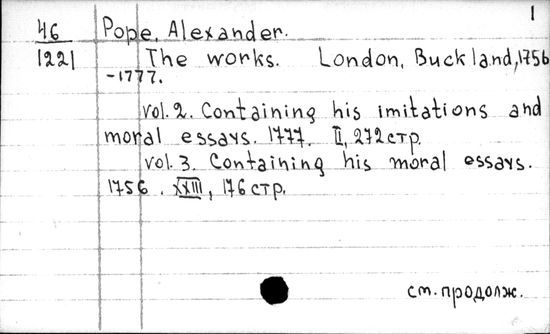 1
46 Pope, Alexander.
1221 The works. London, Buckland, 1756
-1777.
vol. 2. Containing his imitations and
moral essays. 1777. II, 272 стр.
vol. 3. Containing his moral essays.
1756. XXIII, 176 стр.
см. продолж.